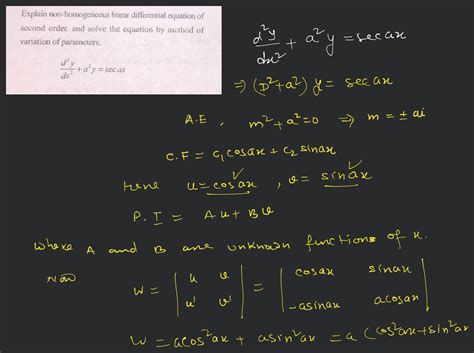 Explain non-homogeneous linear differential equation of
second order, and solve the equation by method of
variation of parameters.
d²y/dx² + a²y = sec ax
d²y/dx² + a²y = sec ax
⇒ (D²+a²) y = sec ax
A.E, m²+a²=0 ⇒ m = ± ai
C.F = c₁cosax + c₂ sinax
Here u = cosax, v = sinax
P.I = Au + Bv
where A and B are unknown functions of x.
Now
W = | u v | = | cosax sinax |
| u' v' | | -asinax acosax |
W = acos²ax + asin²ax = a (cos²ax+sin²ax